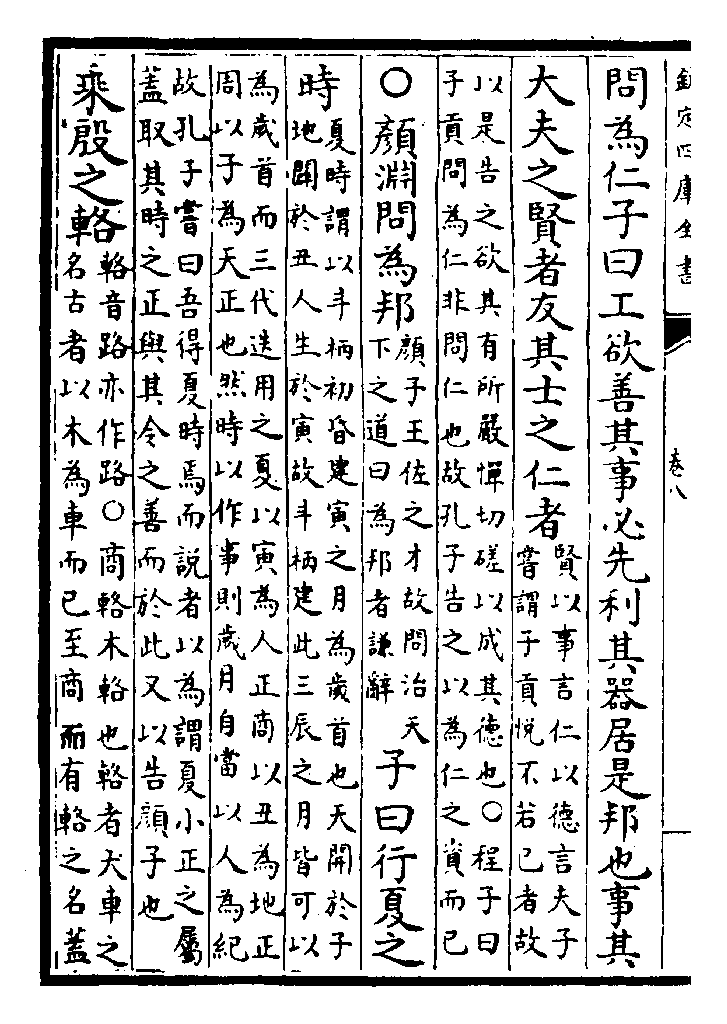 欽定四庫全書
卷八
問為仁子曰工欲善其事必先利其器居是邦也事其
大夫之賢者友其士之仁者
賢以事言仁以德言夫子
嘗謂子貢悅不若已者故
以是告之欲其有所嚴憚切磋以成其德也○程子曰
子貢問為仁非問仁也故孔子告之以為仁之資而已
○顏淵問為邦
顏子王佐之才故問治天
下之道曰為邦者謙辭
子曰行夏之
時
夏時謂以斗柄初昏建寅之月為歲首也天開於子
地闢於丑人生於寅故斗柄建此三辰之月皆可以
為歲首而三代迭用之夏以寅為人正商以丑為地正
周以子為天正也然時以作事則歲月自當以人為紀
故孔子嘗曰吾得夏時焉而説者以為謂夏小正之屬
蓋取其時之正與其令之善而於此又以告顏子也
乘殷之輅
輅音路亦作路○商輅木輅也輅者大車之
名古者以木為車而已至商而有輅之名蓋